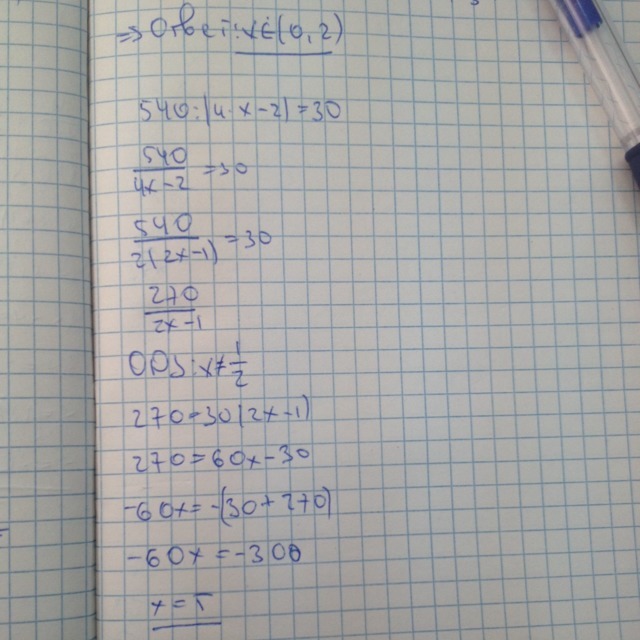 => Ответ: x∈(0,2)
540:(4·x-2)=30
540/4x-2 =30
540/2(2x-1) =30
270/2x-1
ОДЗ: x≠1/2
270=30(2x-1)
270=60x-30
-60x=-(30+270)
-60x=-300
x=5